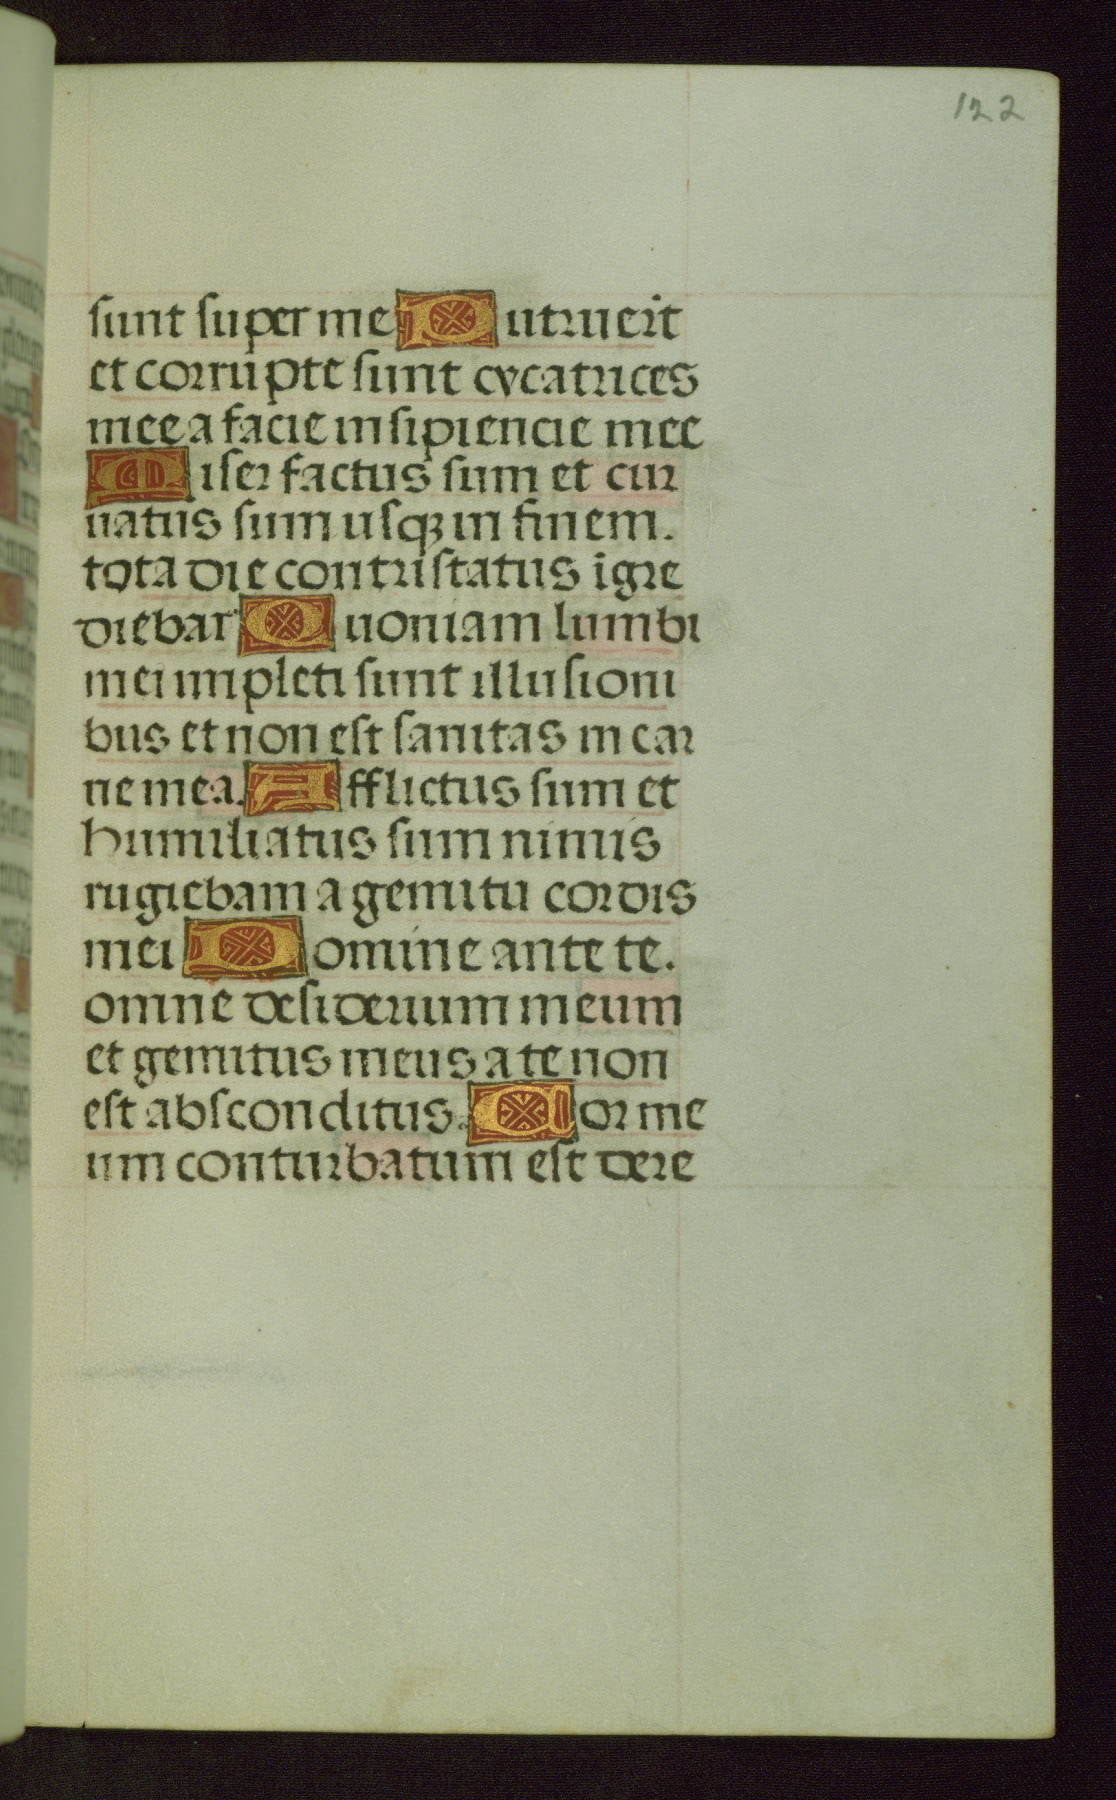 122
sunt super me Putruerit
et corrupte sunt cycatrices
mee a facie insipiencie mee
Miser factus sum et cur
uatus sum usqꝫ in finem.
tota die contristatus īgre
diebar Quoniam lumbi
mei impleti sunt illusioni
bus et non est sanitas in car
ne mea. Afflictus sum et
humiliatus sum nimis
rugiebam a gemitu cordis
mei Domine ante te.
omne desiderium meum
et gemitus meus a te non
est absconditus. Cor me
um conturbatum est dere